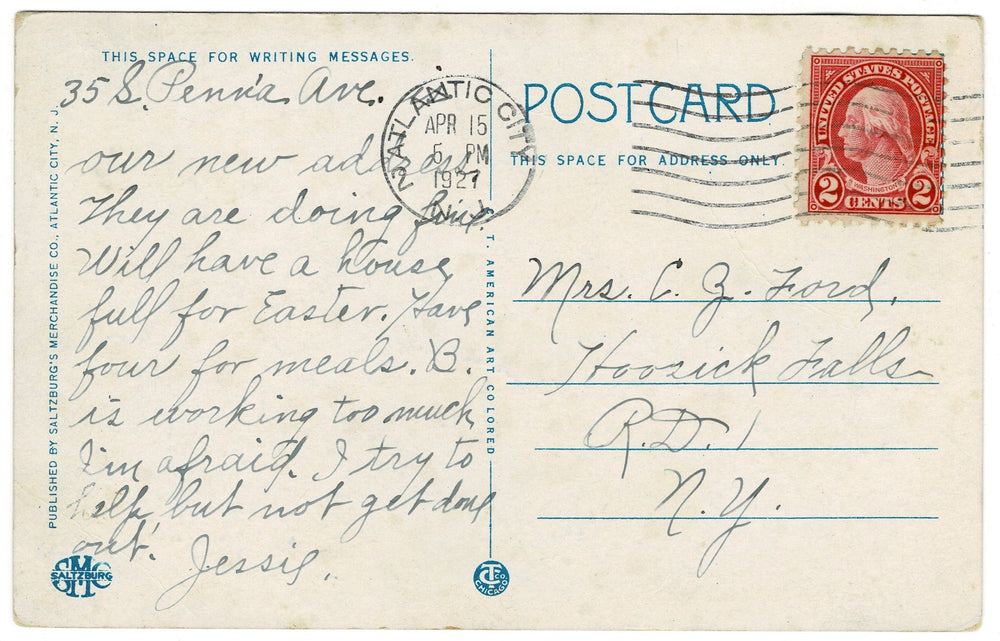 THIS SPACE FOR WRITING MESSAGES.
35 S. Penn'a Ave.
our new address
They are doing fine.
Will have a house
full for Easter. Have
four for meals. B.
is working too much
I'm afraid. I try to
help, but not get done
out.
Jessie.
PUBLISHED BY SALTZBURG'S MERCHANDISE CO., ATLANTIC CITY, N. J.
SMC
SALTZBURG
T. AMERICAN ART COLORED
CT CO
CHICAGO
ATLANTIC CITY
APR 15
5 PM
1927
N.J.
POST CARD
THIS SPACE FOR ADDRESS ONLY.
UNITED STATES POSTAGE
WASHINGTON
2 CENTS 2
Mrs. C. Z. Ford,
Hoosick Falls
R.D. 1
N.Y.